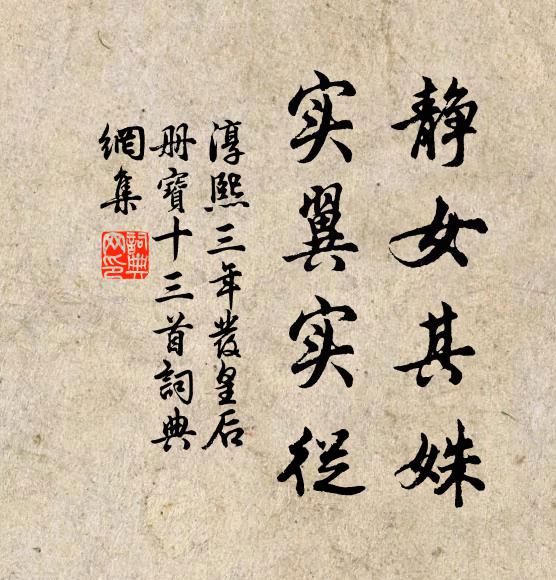 静女其姝
实翼实從
淳熙三年發皇后
册寶十三首詞典
網集
詞典網印